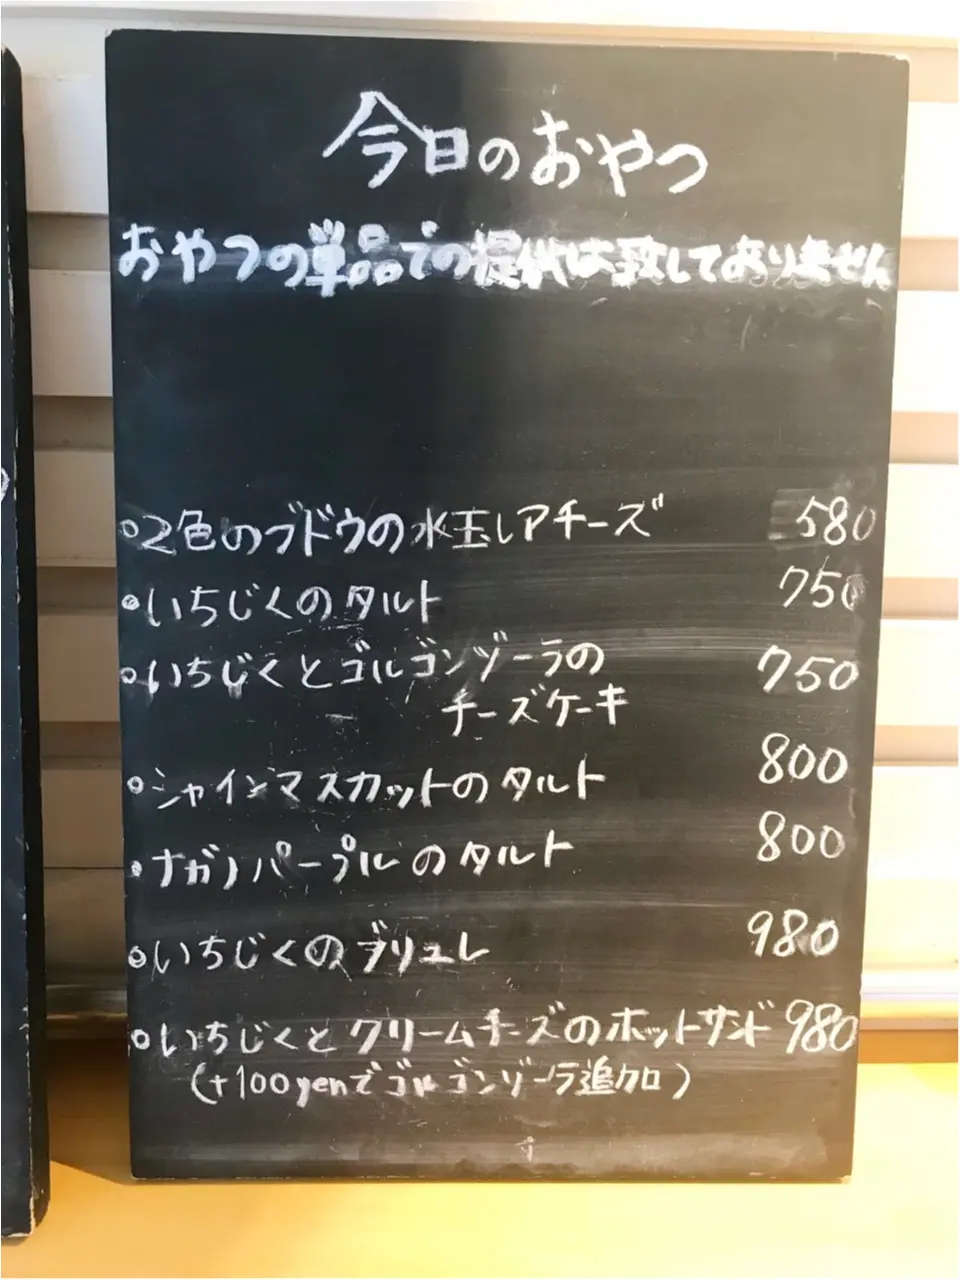 今日のおやつ
おやつの単品での提供は致しておりません
○2色のブドウの水玉レアチーズ 580
○いちじくのタルト 750
○いちじくとゴルゴンゾーラの 750
チーズケーキ
○シャインマスカットのタルト 800
○ナガノパープルのタルト 800
○いちじくのブリュレ 980
○いちじくとクリームチーズのホットサンド 980
(+100yenでゴルゴンゾーラ追加)